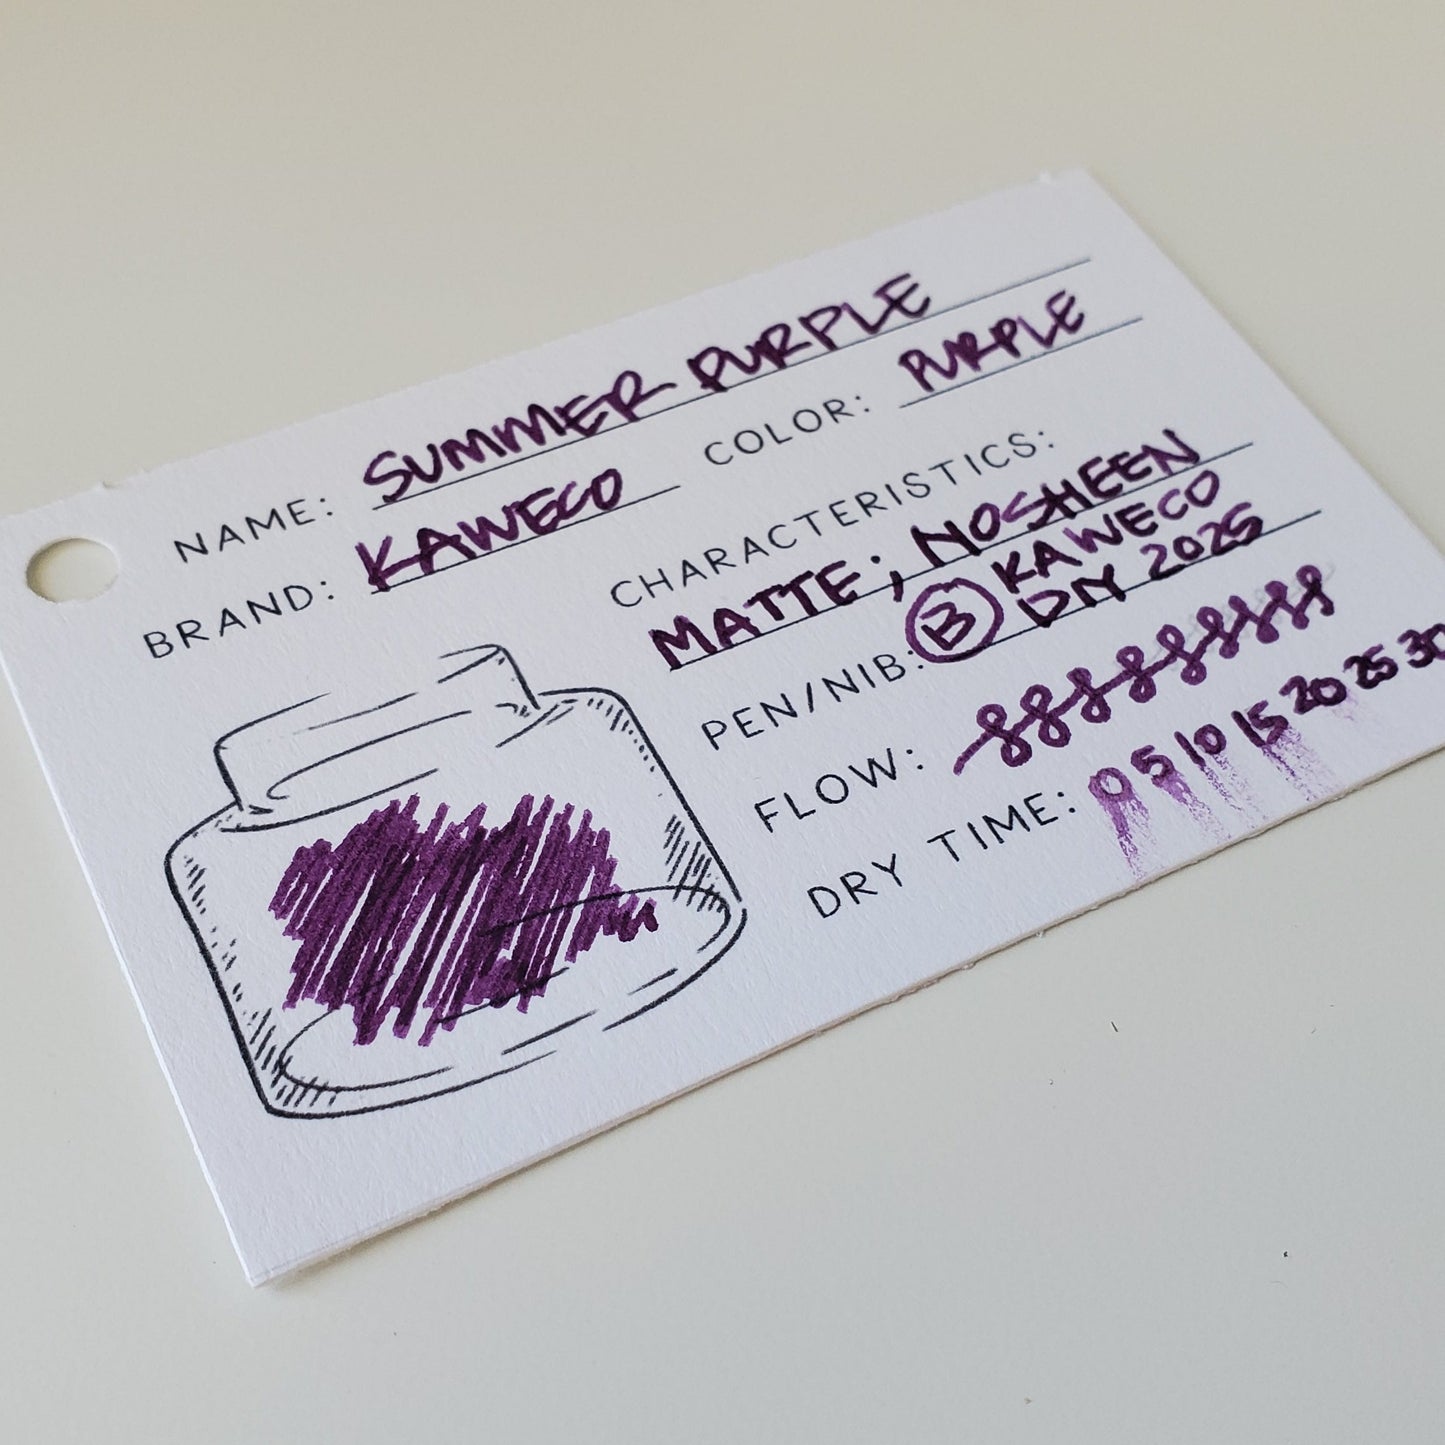 NAME: SUMMER PURPLE
BRAND: KAWECO COLOR: PURPLE
CHARACTERISTICS:
MATTE; NO SHEEN
PEN/NIB: B KAWECO
DIY 2025
FLOW:
DRY TIME: 0 5 10 15 20 25 30